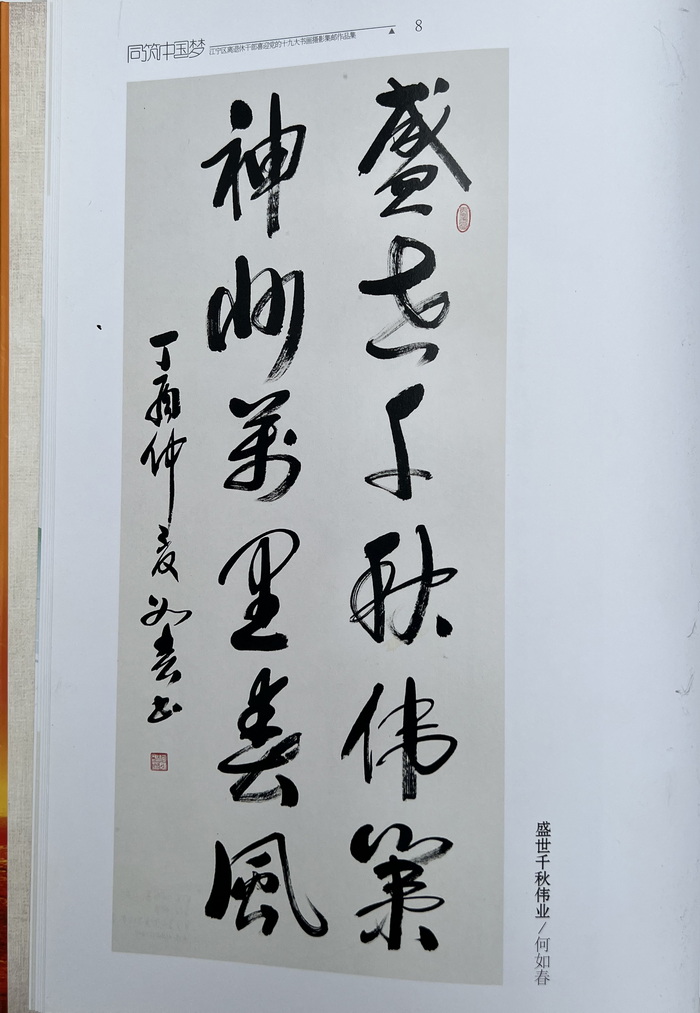 同筑中国梦 江宁区离退休干部喜迎党的十九大书画摄影集邮作品集 8
盛世千秋伟業
神州萬里春風
丁酉仲夏如春书
盛世千秋伟业/何如春